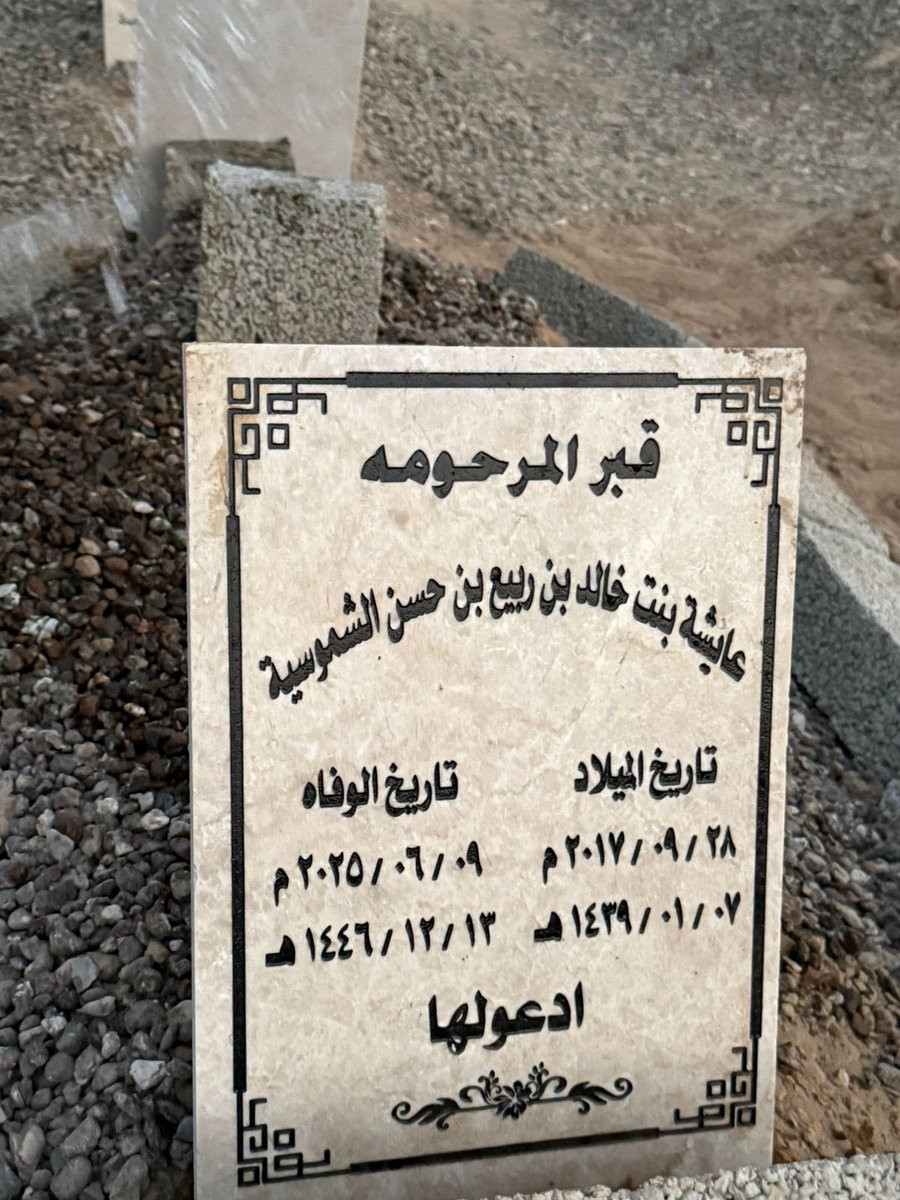 قبر المرحومه
عايشة بنت خالد بن ربيع بن حسن الشموسية
تاريخ الميلاد
٢٠١٧/٠٩/٢٨ م
١٤٣٩/٠١/٠٧ هـ
تاريخ الوفاه
٢٠٢٥/٠٦/٠٩ م
١٤٤٦/١٢/١٣ هـ
ادعولها